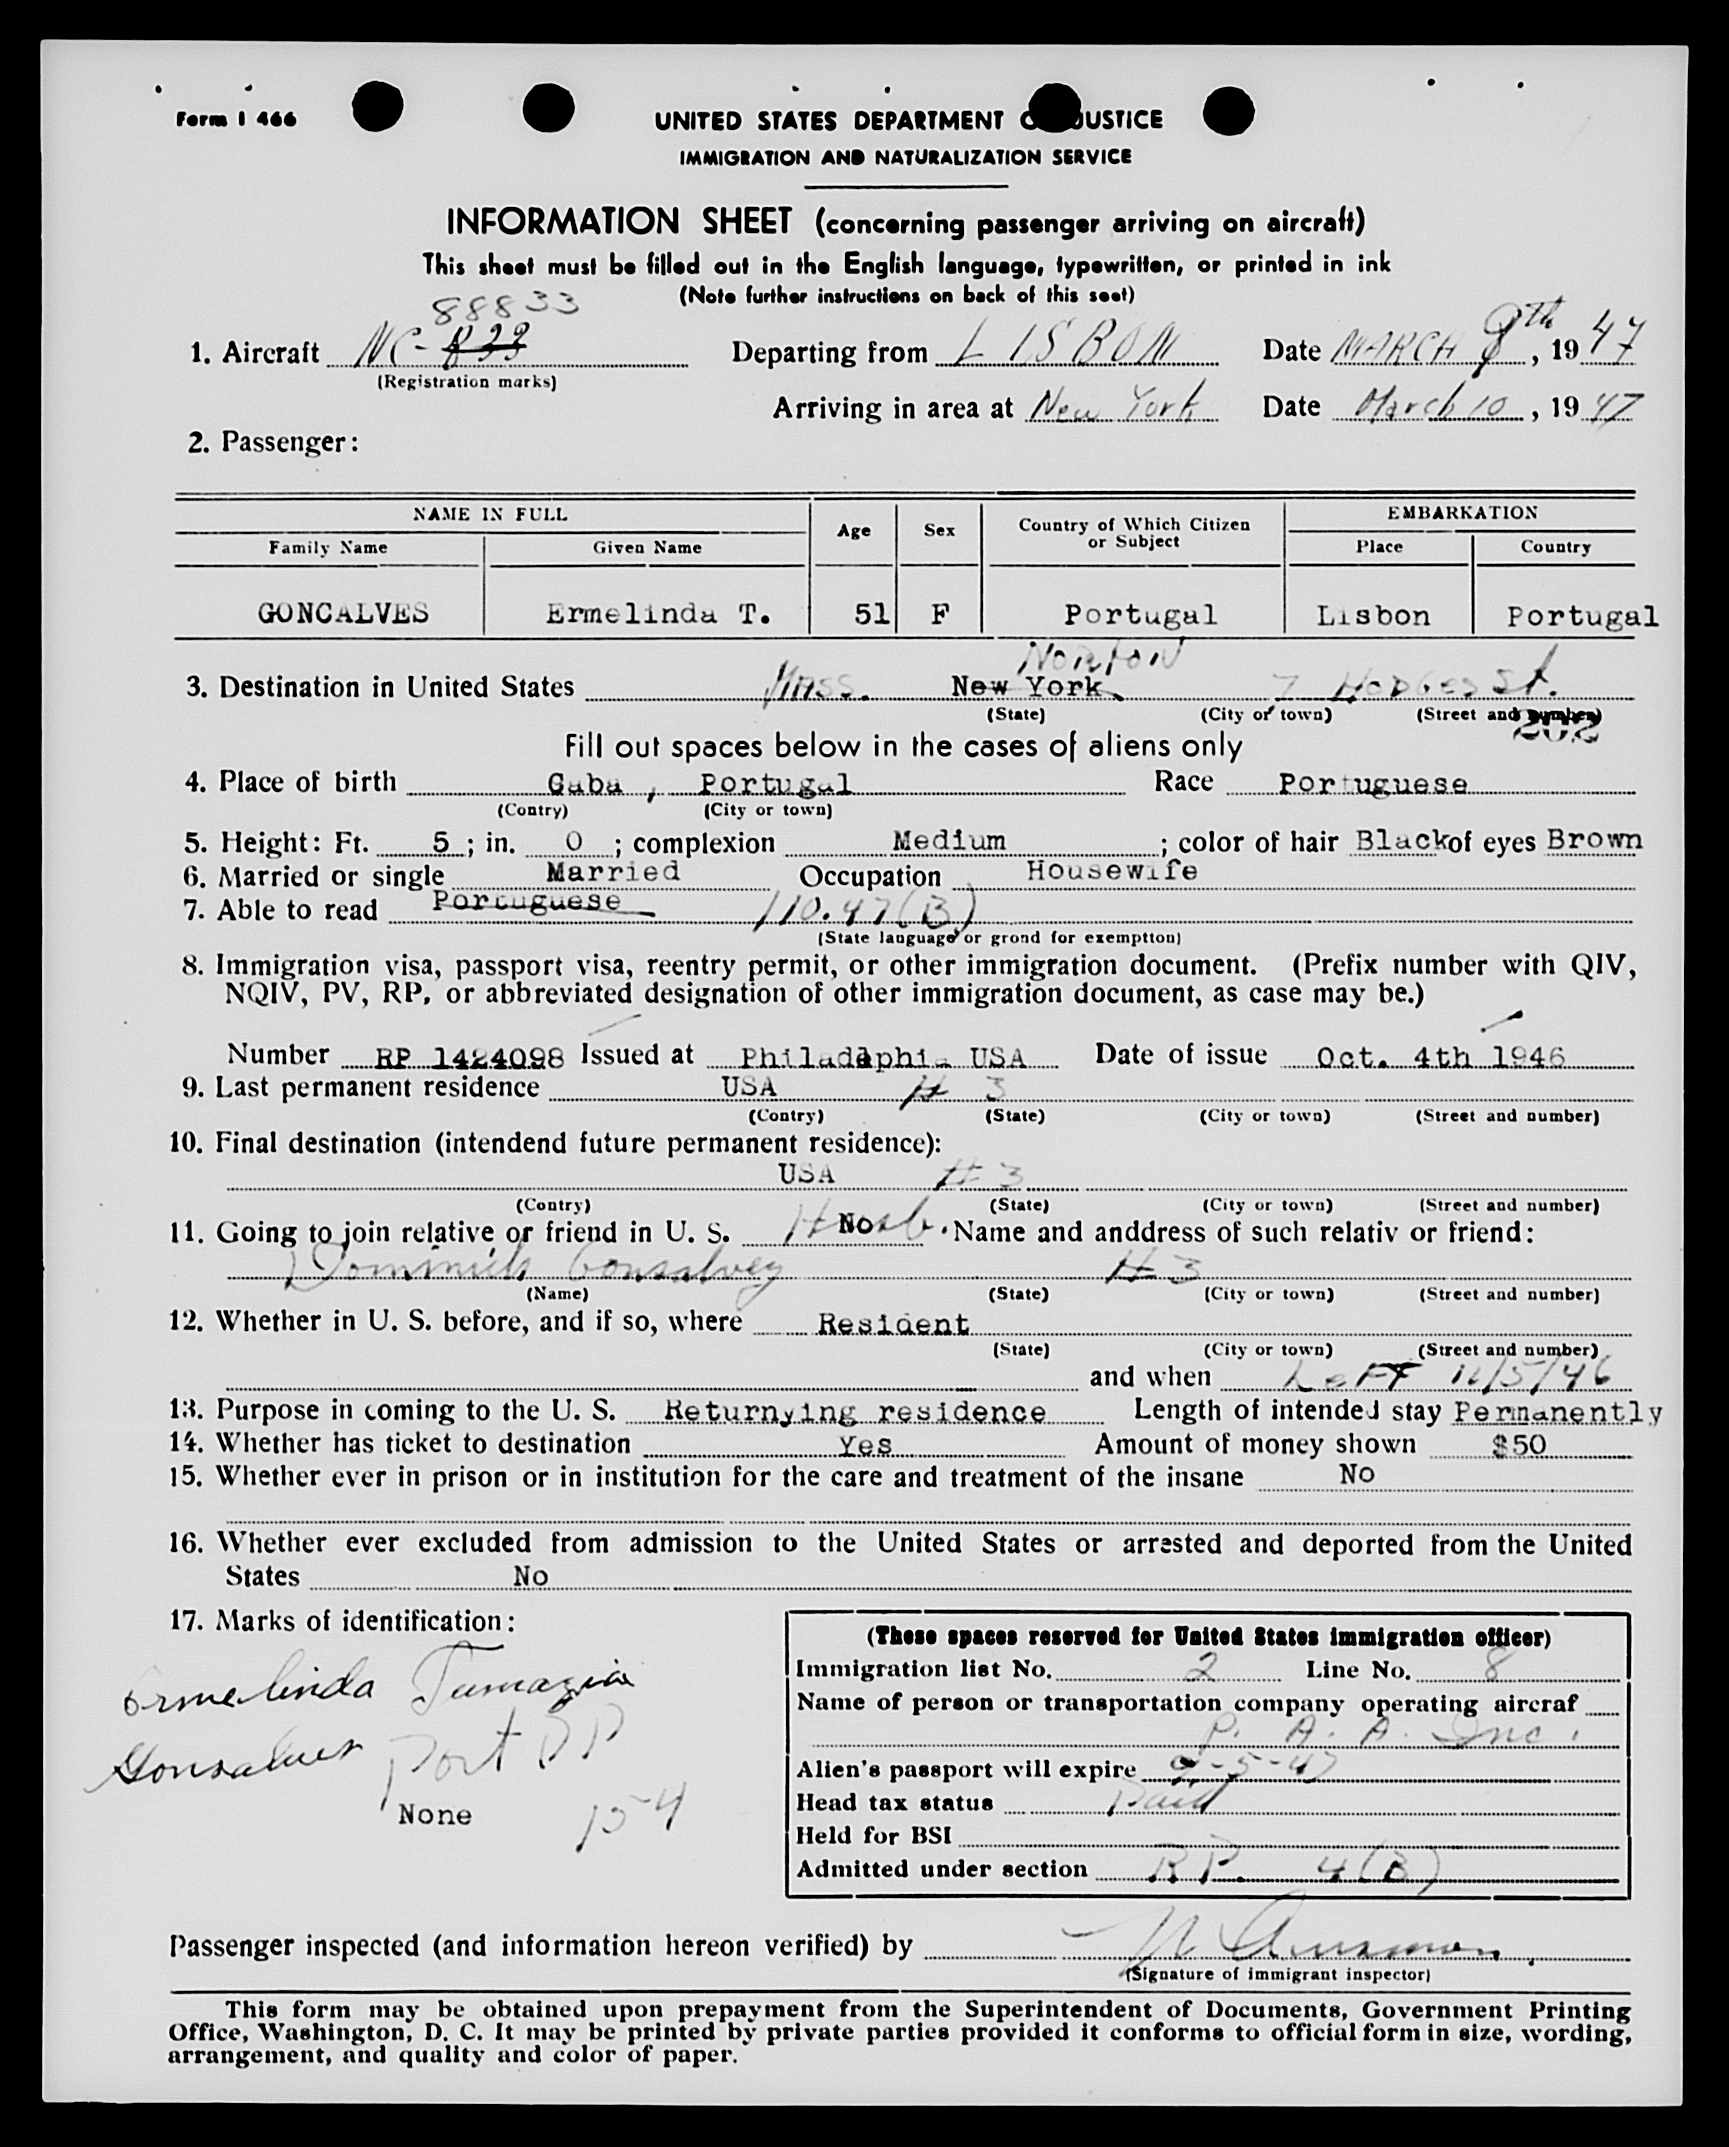 Form I 466
UNITED STATES DEPARTMENT OF JUSTICE
IMMIGRATION AND NATURALIZATION SERVICE
INFORMATION SHEET (concerning passenger arriving on aircraft)
This sheet must be filled out in the English language, typewritten, or printed in ink
(Note further instructions on back of this seet)
88833
1. Aircraft NC- 833 Departing from LISBON Date MARCH 9th, 1947
(Registration marks)
Arriving in area at New York Date March 10, 1947
2. Passenger:
NAME IN FULL Age Sex Country of Which Citizen or Subject EMBARKATION
Family Name Given Name Place Country
GONCALVES Ermelinda T. 51 F Portugal Lisbon Portugal
NORTON
3. Destination in United States MASS. New York 7 Hodges St.
(State) (City or town) (Street and number)
202
Fill out spaces below in the cases of aliens only
4. Place of birth Gaba , Portugal Race Portuguese
(Contry) (City or town)
5. Height: Ft. 5; in. 0; complexion Medium; color of hair Black of eyes Brown
6. Married or single Married Occupation Housewife
7. Able to read Portuguese 110.47(B)
(State language or grond for exemptton)
8. Immigration visa, passport visa, reentry permit, or other immigration document. (Prefix number with QIV,
NQIV, PV, RP, or abbreviated designation of other immigration document, as case may be.)
Number RP 1424098 Issued at Philadelphia USA Date of issue Oct. 4th 1946
9. Last permanent residence USA # 3
(Contry) (State) (City or town) (Street and number)
10. Final destination (intendend future permanent residence):
USA # 3
(Contry) (State) (City or town) (Street and number)
11. Going to join relative or friend in U. S. No Husb. Name and anddress of such relativ or friend:
Dominick Gonsalves #3
(Name) (State) (City or town) (Street and number)
12. Whether in U. S. before, and if so, where Resident
(State) (City or town) (Street and number)
and when Left 10/5/46
13. Purpose in coming to the U. S. Returnying residence Length of intended stay Permanently
14. Whether has ticket to destination Yes Amount of money shown $50
15. Whether ever in prison or in institution for the care and treatment of the insane No
16. Whether ever excluded from admission to the United States or arrested and deported from the United
States No
17. Marks of identification:
Ermelinda Tumazia
Gonsalves Port PP
None 154
(These spaces reserved for United States immigration officer)
Immigration list No. 2 Line No. 8
Name of person or transportation company operating aircraf
P. A. A. Inc.
Alien's passport will expire 9-5-47
Head tax status Paid
Held for BSI
Admitted under section RP. 4(B)
Passenger inspected (and information hereon verified) by
(Signature of immigrant inspector)
This form may be obtained upon prepayment from the Superintendent of Documents, Government Printing
Office, Washington, D. C. It may be printed by private parties provided it conforms to official form in size, wording,
arrangement, and quality and color of paper.